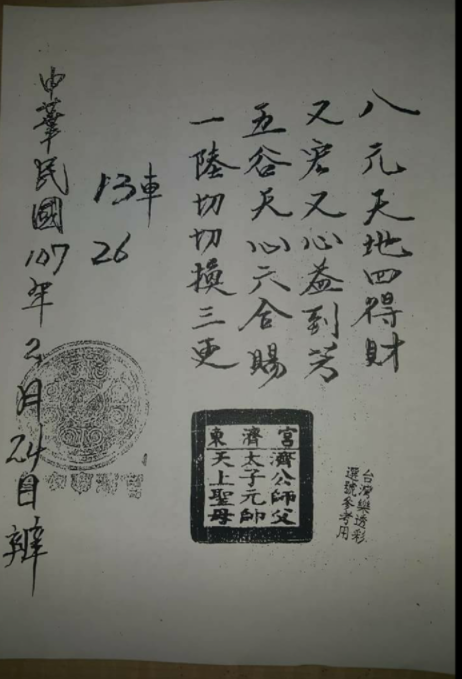 八元天地四得財
又宏又心益到芳
五谷天心六合賜
一陸切切換三更
13車
26
中華民國107年2月24日辦
宮濟東
濟公師父
太子元帥
天上聖母
台灣樂透彩
選號參考用